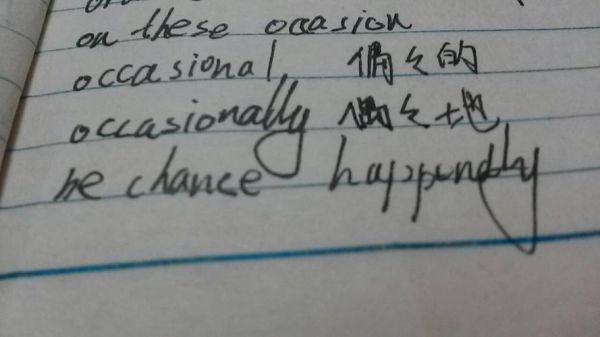 on these occasion
occasional, 偶々的
occasionally 偶々地
be chance happendly